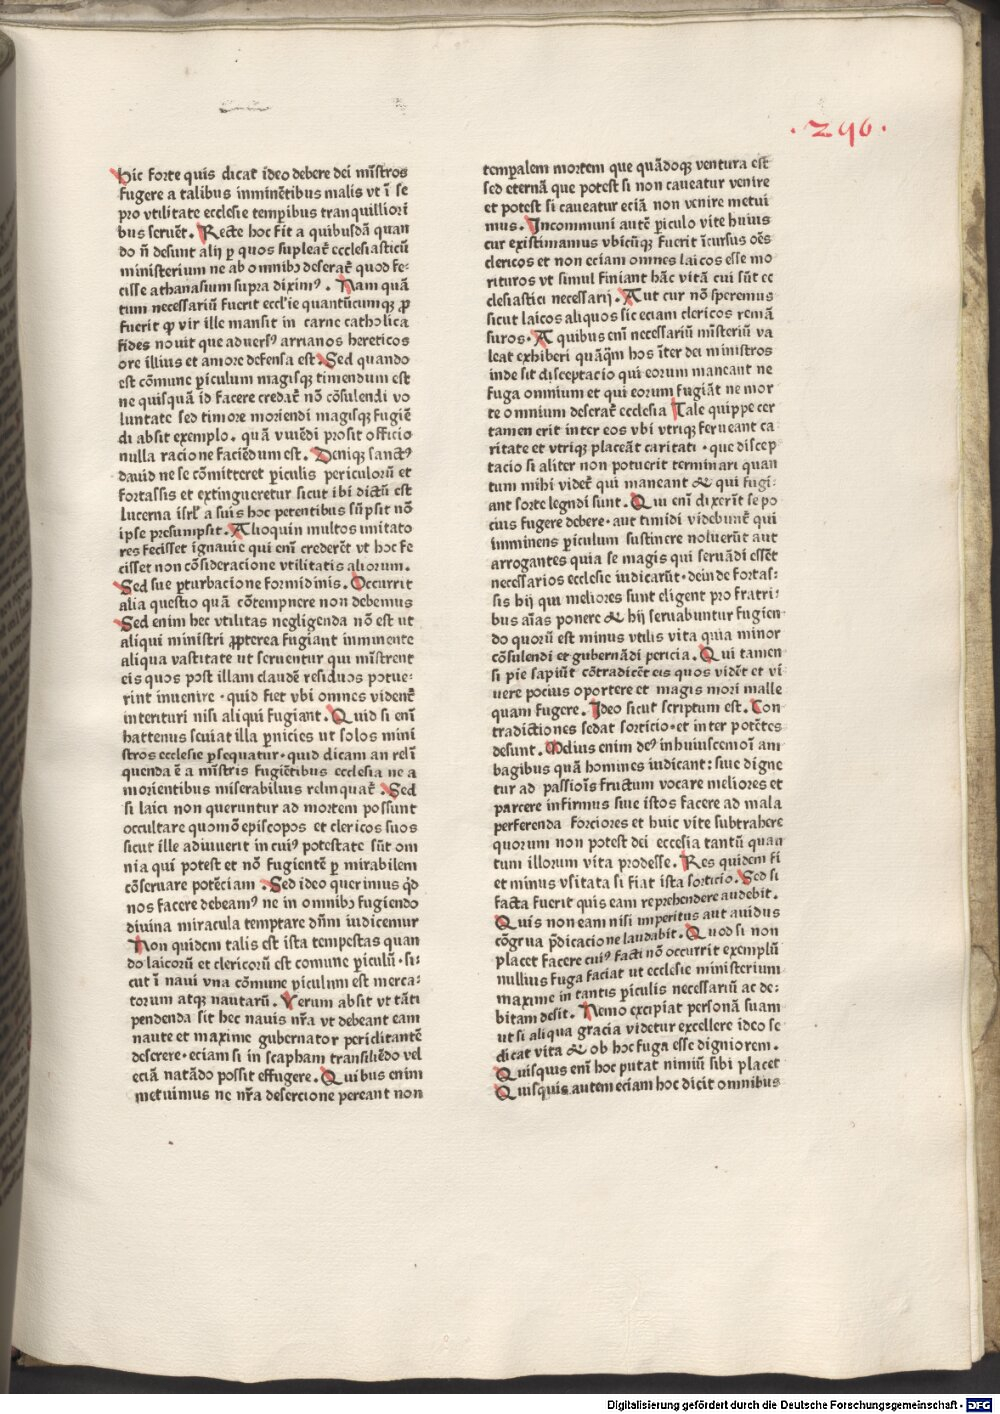 .296.
Hic forte quis dicat ideo debere dei mīstros
fugere a talibus imminētibus malis vt ī se
pro vtilitate ecclesie temꝑibus tranquilliorī
bus seruēt. Recte hoc fit a quibusdā quan
do ñ desunt alij ꝑ quos supleat᷑ ecclesiasticū
ministerium ne ab omnibꝫ deserat᷑ quod fe⸗
cisse athanasium supra diximꝰ. Nam quā
tum necessariū fuerit eccl'ie quantūcumqꝫ ꝓ
fuerit ꝙ vir ille mansit in carne catholica
fides nouit que aduersꝰ arrianos hereticos
ore illius et amore defensa est. Sed quando
est cōmune ꝑiculum magisqꝫ timendum est
ne quisquā id facere credat᷑ nō cōsulendi vo
luntate sed timore moriendi magisqꝫ fugiē
di absit exemplo. quā viuēdi prosit officio
nulla racione faciēdum est. Deniqꝫ sanctꝰ
dauid ne se cōmitteret ꝑiculis periculorū et
fortassis et extingueretur sicut ibi dictū est
lucerna isrl' a suis hoc petentibus sūpsit nō
ipse presumpsit. Alioquin multos imitato
res fecisset ignauie qui enī crederēt vt hoc fe
cisset non cōsideracione vtilitatis aliorum.
Sed sue ꝑturbacione formidinis. Occurrit
alia questio quā cōtempnere non debemus
Sed enim hec vtilitas negligenda nō est ut
aliqui ministri ꝓpterea fugiant imminente
aliqua vastitate ut seruentur qui mīstrent
eis quos post illam cladē residuos potue⸗
rint inuenire. quid fiet vbi omnes vident᷑
interituri nisi aliqui fugiant. Quid si enī
hattenus seuiat illa ꝑnicies ut solos mini
stros ecclesie ꝑsequatur. quid dicam an relī
quenda ē a mīstris fugiētibus ecclesia ne a
morientibus miserabilius relinquat᷑. Sed
si laici non queruntur ad mortem possunt
occultare quomō episcopos et clericos suos
sicut ille adiuuerit in cuiꝰ potestate sūt om
nia qui potest et nō fugientē ꝑ mirabilem
cōseruare potēciam. Sed ideo querimus qd̄
nos facere debeamꝰ ne in omnibꝫ fugiendo
diuina miracula temptare dn̄m iudicemur
Non quidem talis est ista tempestas quan
do laicorū et clericorū est comune ꝑiculū. si⸗
cut ī naui vna cōmune ꝑiculum est merca⸗
torum atqꝫ nautarū. Verum absit vt tāti
pendenda sit hec nauis nr̄a vt debeant eam
naute et maxime gubernator periclitantē
deserere. eciam si in scapham transiliēdo vel
eciā natādo possit effugere. Quibus enim
metuimus ne nr̄a desercione pereant non
temꝑalem mortem que quādoqꝫ ventura est
sed eternā que potest si non caueatur venire
et potest si caueatur eciā non venire metui
mus. Incommuni autē ꝑiculo vite huius
cur existimamus vbicūqꝫ fuerit īcursus oēs
clericos et non eciam omnes laicos esse mo
rituros vt simul finiant hāc vitā cui sūt ec
clesiastici necessarij. Aut cur nō speremus
sicut laicos aliquos sic eciam clericos remā
suros. A quibus enī necessariū mīsteriū va
leat exhiberi quāqm̄ hos īter dei ministros
inde sit disceptacio qui eorum maneant ne
fuga omnium et qui eorum fugiāt ne mor
te omnium deserat᷑ ecclesia Tale quippe cer
tamen erit inter eos vbi vtriqꝫ ferueant ca
ritate et vtriqꝫ placeāt caritati. que discep
tacio si aliter non potuerit terminari quan
tum mihi videt᷑ qui maneant & qui fugi⸗
ant sorte legndi sunt. Qui enī dixerīt se po
cius fugere debere. aut timidi videbunt᷑ qui
imminens ꝑiculum sustinere noluerūt aut
arrogantes quia se magis qui seruādi essēt
necessarios ecclesie iudicarūt. deinde fortas⸗
sis hij qui meliores sunt eligent pro fratri⸗
bus aīas ponere & hij seruabuntur fugien
do quorū est minus vtilis vita quia minor
cōsulendi et gubernādi pericia. Qui tamen
si pie sapiūt cōtradicēt eis quos vidēt et vi⸗
uere pocius oportere et magis mori malle
quam fugere. Ideo sicut scriptum est. Con
tradictiones sedat sorticio. et inter potētes
desunt. Melius enim deꝰ in huiuscemoī am
bagibus quā homines iudicant: siue digne
tur ad passioīs fructum vocare meliores et
parcere infirmus siue istos facere ad mala
perferenda forciores et huic vite subtrahere
quorum non potest dei eccesia tantū quan
tum illorum vita prodesse. Res quidem fi
et minus vsitata si fiat ista sorticio. Sed si
facta fuerit quis eam reprehendere audebit.
Quis non eam nisi imperitus aut auidus
cōgrua p̄dicacione laudabit. Quod si non
placet facere cuiꝰ facti nō occurrit exemplū
nullius fuga faciat ut ecclesie ministerium
maxime in tantis ꝑiculis necessariū ac de⸗
bitam desit. Nemo excipiat personā suam
ut si aliqua gracia videtur excellere ideo se
dicat vita & ob hoc fuga esse digniorem.
Quisquis enī hoc putat nimiū sibi placet
Quisquis autem eciam hoc dicit omnibus
Digitalisierung gefördert durch die Deutsche Forschungsgemeinschaft - DFG